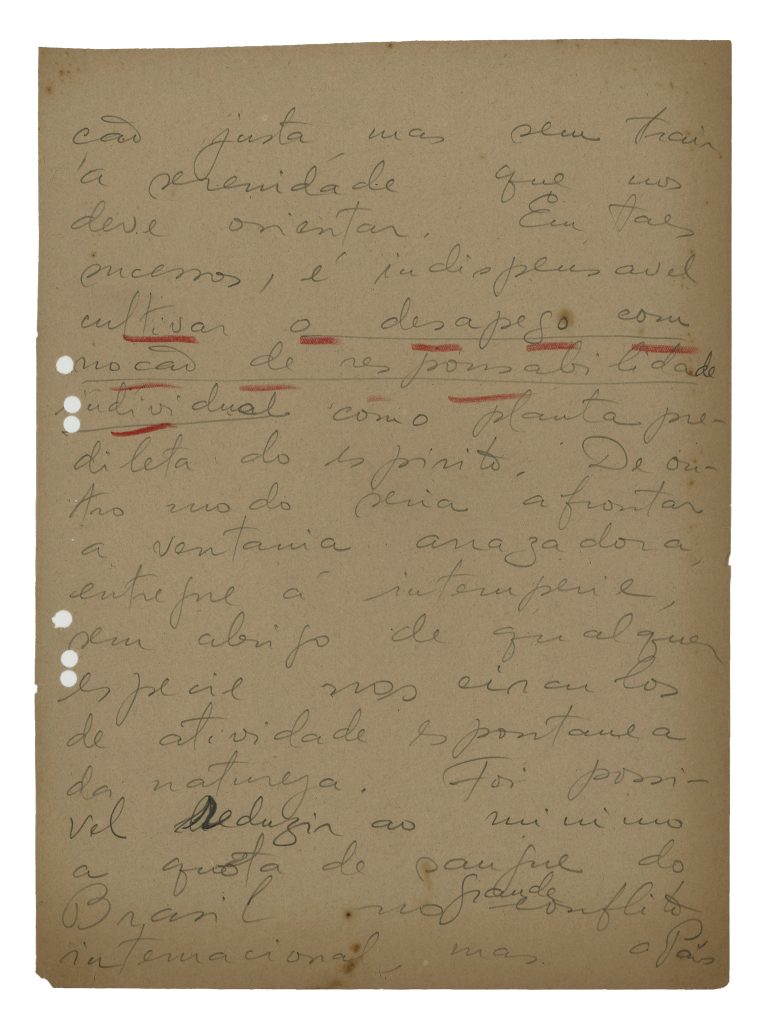 cão justa mas sem trair
a serenidade que nos
deve orientar. Em taes
sucessos, é indispensavel
cultivar o desapego com
noção de responsabilidade
individual como planta pre-
dileta do espirito. De ou-
tro modo seria afrontar
a ventania arrazadora,
entregue á intemperie,
sem abrigo de qualquer
especie nos circulos
de atividade espontanea
da natureza. Foi possi-
vel reduzir ao minimo
a quota de sangue do
Brasil no grande conflito
internacional, mas o País